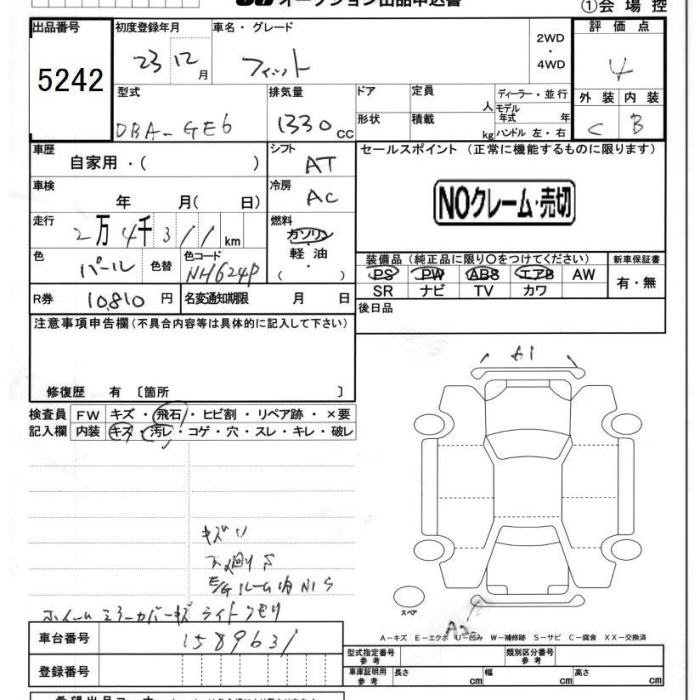 オークション出品申込書
①会場控
出品番号 初度登録年月 車名・グレード 2WD・4WD 評価点
5242 23 12月 フィット 4
型式 排気量 ドア 定員 人 ディーラー・並行 外装 内装
DBA-GE6 1330cc 形状 積載 kg モデル年式 年 ハンドル 左・右 C B
車歴 シフト セールスポイント (正常に機能するものに限ります)
自家用・( ) AT
車検 冷房 NOクレーム・売切
年 月( 日) AC
走行 燃料
2万4千311km ガソリン
色 色替 色コード 軽油 装備品 (純正品に限り〇をつけてください) 新車保証書
パール NH624P ・( ) PS PW ABS エアB AW 有・無
SR ナビ TV カワ
R券 10,810円 名変通知期限 月 日 後日品
注意事項申告欄 (不具合内容等は具体的に記入して下さい)
修復歴 有 〔箇所 〕
A1
検査員 FW キズ・飛石・ヒビ割・リペア跡・×要
記入欄 内装 キズ・汚レ・コゲ・穴・スレ・キレ・破レ
キズU
下廻りS
E/Gルーム内NIS
ホイールミラーカバーキズ ライトクモリ
スペア
A2
車台番号 1589631
A－キズ E－エクボ U－凹み W－補修跡 S－サビ C－腐食 XX－交換済
登録番号
型式指定番号 参考 類別区分番号 参考
車庫証明用 参考 長さ cm 幅 cm 高さ cm